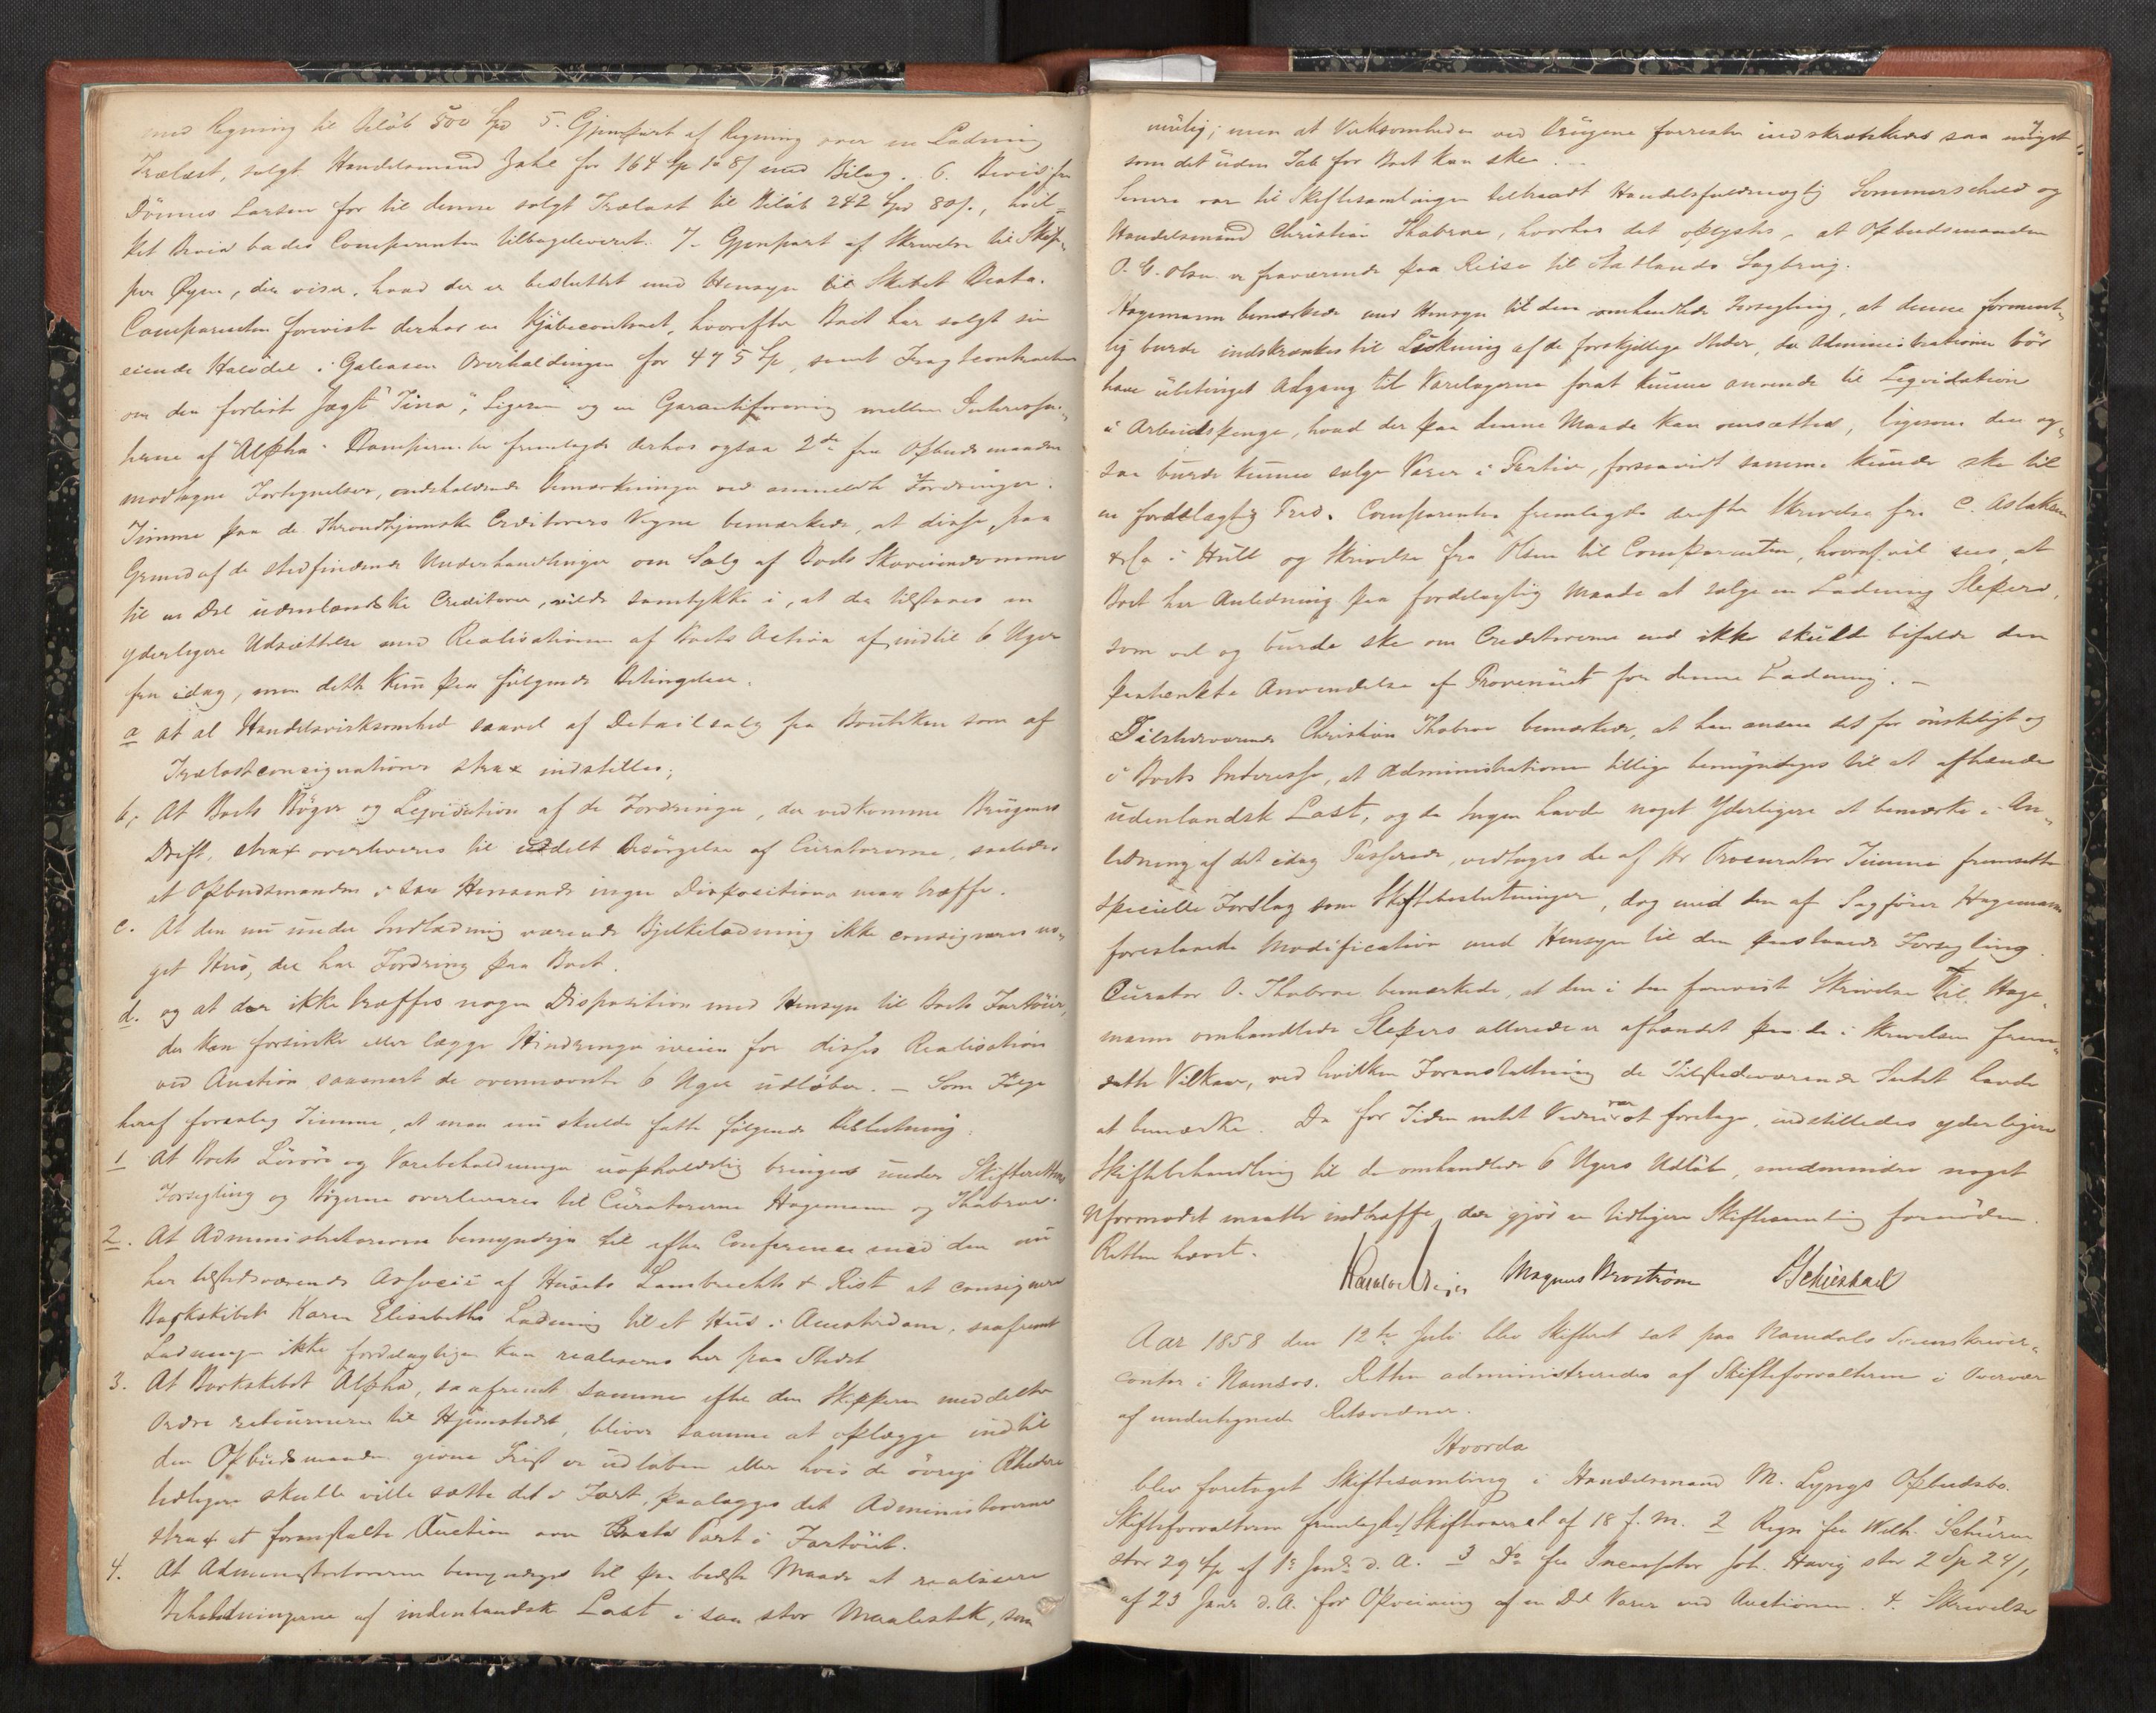 med Regning til Beløb 500 Spd 5. Gjenpart af Regning over en Ladning
Trælast, solgt Handelsmand Zahl for 164 Sp 108/ med Bilag. 6. Bevis fra
Dønnes Larsen for til denne solgt Trælast til Beløb 242 Spd 80/., hvil-
ket Bevis bades Comparenten tilbageleveret. 7. Gjenpart af Skrivelse til Skip-
per Øyen, der viser, hvad der er besluttet med Hensyn til Skibet Beata.
Comparenten foreviste derhos en Kjøbecontract, hvorefter Boet har solgt sin
eiende Halvdel i Galeasen Overhaldingen for 475 Sp, samt Fragtcontracten
om den forliste Jagt "Tina", Ligesaa og en Garantiforening mellem Interessen-
terne af "Alpha". Comparenten fremlagde derhos ogsaa 2de fra Opbudsmanden
modtagne Fortegnelser, indeholdende Bemærkninger ved anmeldte Fordringer.
Timme paa de Throndhjemske Creditorers Vegne bemærkede, at disse, paa
Grund af de stedfindende Underhandlinger om Salg af Boets Skoveiendomme
til en Del udenlandske Creditorer, vilde samtykke i, at der tilstaaes en
yderligere Udsættelse med Realisationen af Boets Activa af indtil 6 Uger
fra idag, men dette kun paa følgende Betingelser.
a at al Handelsvirksomhed saavel af Detailsalg fra Boutiken som af
Trælastconsignationer strax indstilles;
b, At Boets Bøger og Leqvidation af de Fordringer, der vedkomme Brugenes
Drift, strax overleveres til udelt Besørgelse af Curatorerne, saaledes
at Opbudsmanden i saa Henseende ingen Dispositioner maa træffe.
c. At den nu under Indladning værende Bjelkeladning ikke consigneres no-
get Hus, der har Fordring paa Boet.
d. og at der ikke træffes nogen Disposition med Hensyn til Boets Fartøier,
der kan forsinke eller lægge Hindringer iveien for disses Realisation
ved Auction saasnart de ovennævnte 6 Uger udløber. – Som Følge
heraf foreslog Timme, at man nu skulde fatte følgende Beslutning:
1 At Boets Løsøre og Varebeholdninger uopholdelig bringes under Skifterettens
Forsegling og Bøgerne overleveres til Curatorerne Hagemann og Thobroe.
2. At Administratorerne bemyndiges til efter Conference med den nu
her tilstedeværende Associé af Huset Lambrechts & Rist at consignere
Barkskibet Karen Elisabeths Ladning til et Hus i Amsterdam, saafremt
Ladningen ikke fordelagtigen kan realiseres her paa Stedet
3. At Barkskibet Alpha, saafremt samme efter den Skipperen meddelte
Ordre retournerer til Hjemstedet, bliver samme at oplægge indtil
den Opbudsmanden givne Frist er udløben eller hvis de øvrige Rhedere
tidligere skulle ville sætte det i Fart, paalægges det Administratorerne
strax at foranstalte Auction over Boets Part i Fartøiet.
4. At Administratorerne bemyndiges til paa bedste Maade at realisere
Beholdningerne af indenlandsk Last i saa stor Maalestok, som
mulig; men at Virksomheden ved Brugene forresten indskrænkes saa meget
som det uden Tab for Boet kan ske. –
Senere var til Skiftesamlingen tiltraadt Handelsfuldmægtig Sommerschild og
Handelsmand Christian Thobroe, hvorhos det oplystes, at Opbudsmanden
O. C. Olsen er fraværende paa Reise til Statlands Sagbrug.
Hagemann bemærkede med Hensyn til den omhandlede Forsegling, at denne forment-
lig burde indskrænkes til Lukning af de forskjellige Steder, da Administrationen bør
have ubetinget Adgang til Varelagerne forat kunne anvende til Leqvidation
i Arbeidspenge, hvad der paa denne Maade kan omsættes, ligesom den og-
saa burde kunne sælge Varer i Partier, forsaavidt samme kunde ske til
en fordelagtig Pris. Comparenten fremlagde derefter Skrivelse fra C. Aslaksen
& Co i Hull og Skrivelse fra Olsen til Comparenten, hvoraf vil sees, at
Boet har Anledning paa fordelagtig Maade at sælge en Ladning Slepers,
som vel og burde ske om Creditorerne end ikke skulde bifalde den
paatænkte Anvendelse af Provenuet for denne Ladning. –
Tilstedeværende Christian Thobroe bemærkede, at han ansaa det for ønskeligt og
i Boets Interesse, at Administrationen tillige bemyndiges til at afhænde
udenlandsk Last, og da Ingen havde noget Yderligere at bemærke i An-
ledning af det idag Passerede, vedtoges de af Hr Procurator Timme fremsatte
specielle Forslag som Skiftebeslutninger, dog med den af Sagfører Hagemann
foreslaaede Modification med Hensyn til den paastaaede Forsegling.
Curator O. Thobroe bemærkede, at den i den foreviste Skrivelse til Hage-
mann omhandlede Slepers allerede er afhændet paa de i Skrivelsen frem-
satte Vilkaar, ved hvilken Foranstaltning de Tilstedeværende Intet havde
at bemærke. Da for Tiden intet Videre var at foretage, indstilledes yderligere
Skiftebehandling til de omhandlede 6 Ugers Udløb, medmindre noget
Uformodet maatte indtræffe, der gjør en tidligere Skiftesamling fornøden.
Retten hævet.
Magnus Brostrøm
Aar 1858 den 12te Juli blev Skifteret sat paa Namdals Sorenskriver-
contor i Namsos. Retten administreredes af Skifteforvalteren i Overvær
af undertegnede Retsvidner.
Hvorda
blev foretaget Skiftesamling i Handelsmand M. Lyngs Opbudsbo.
Skifteforvalteren fremlagde 1 Skiftevarsel af 18 f. M. 2 Regn fra Wilh. Schürer
stor 29 Sp af 1ste Jan. d. A. 3 Do fra Inenspetor Joh. Havig stor 2 Sp 24/,
af 23 Janr d. A. for Opveining af en Del Varer ved Auctionen. 4. Skrivelse